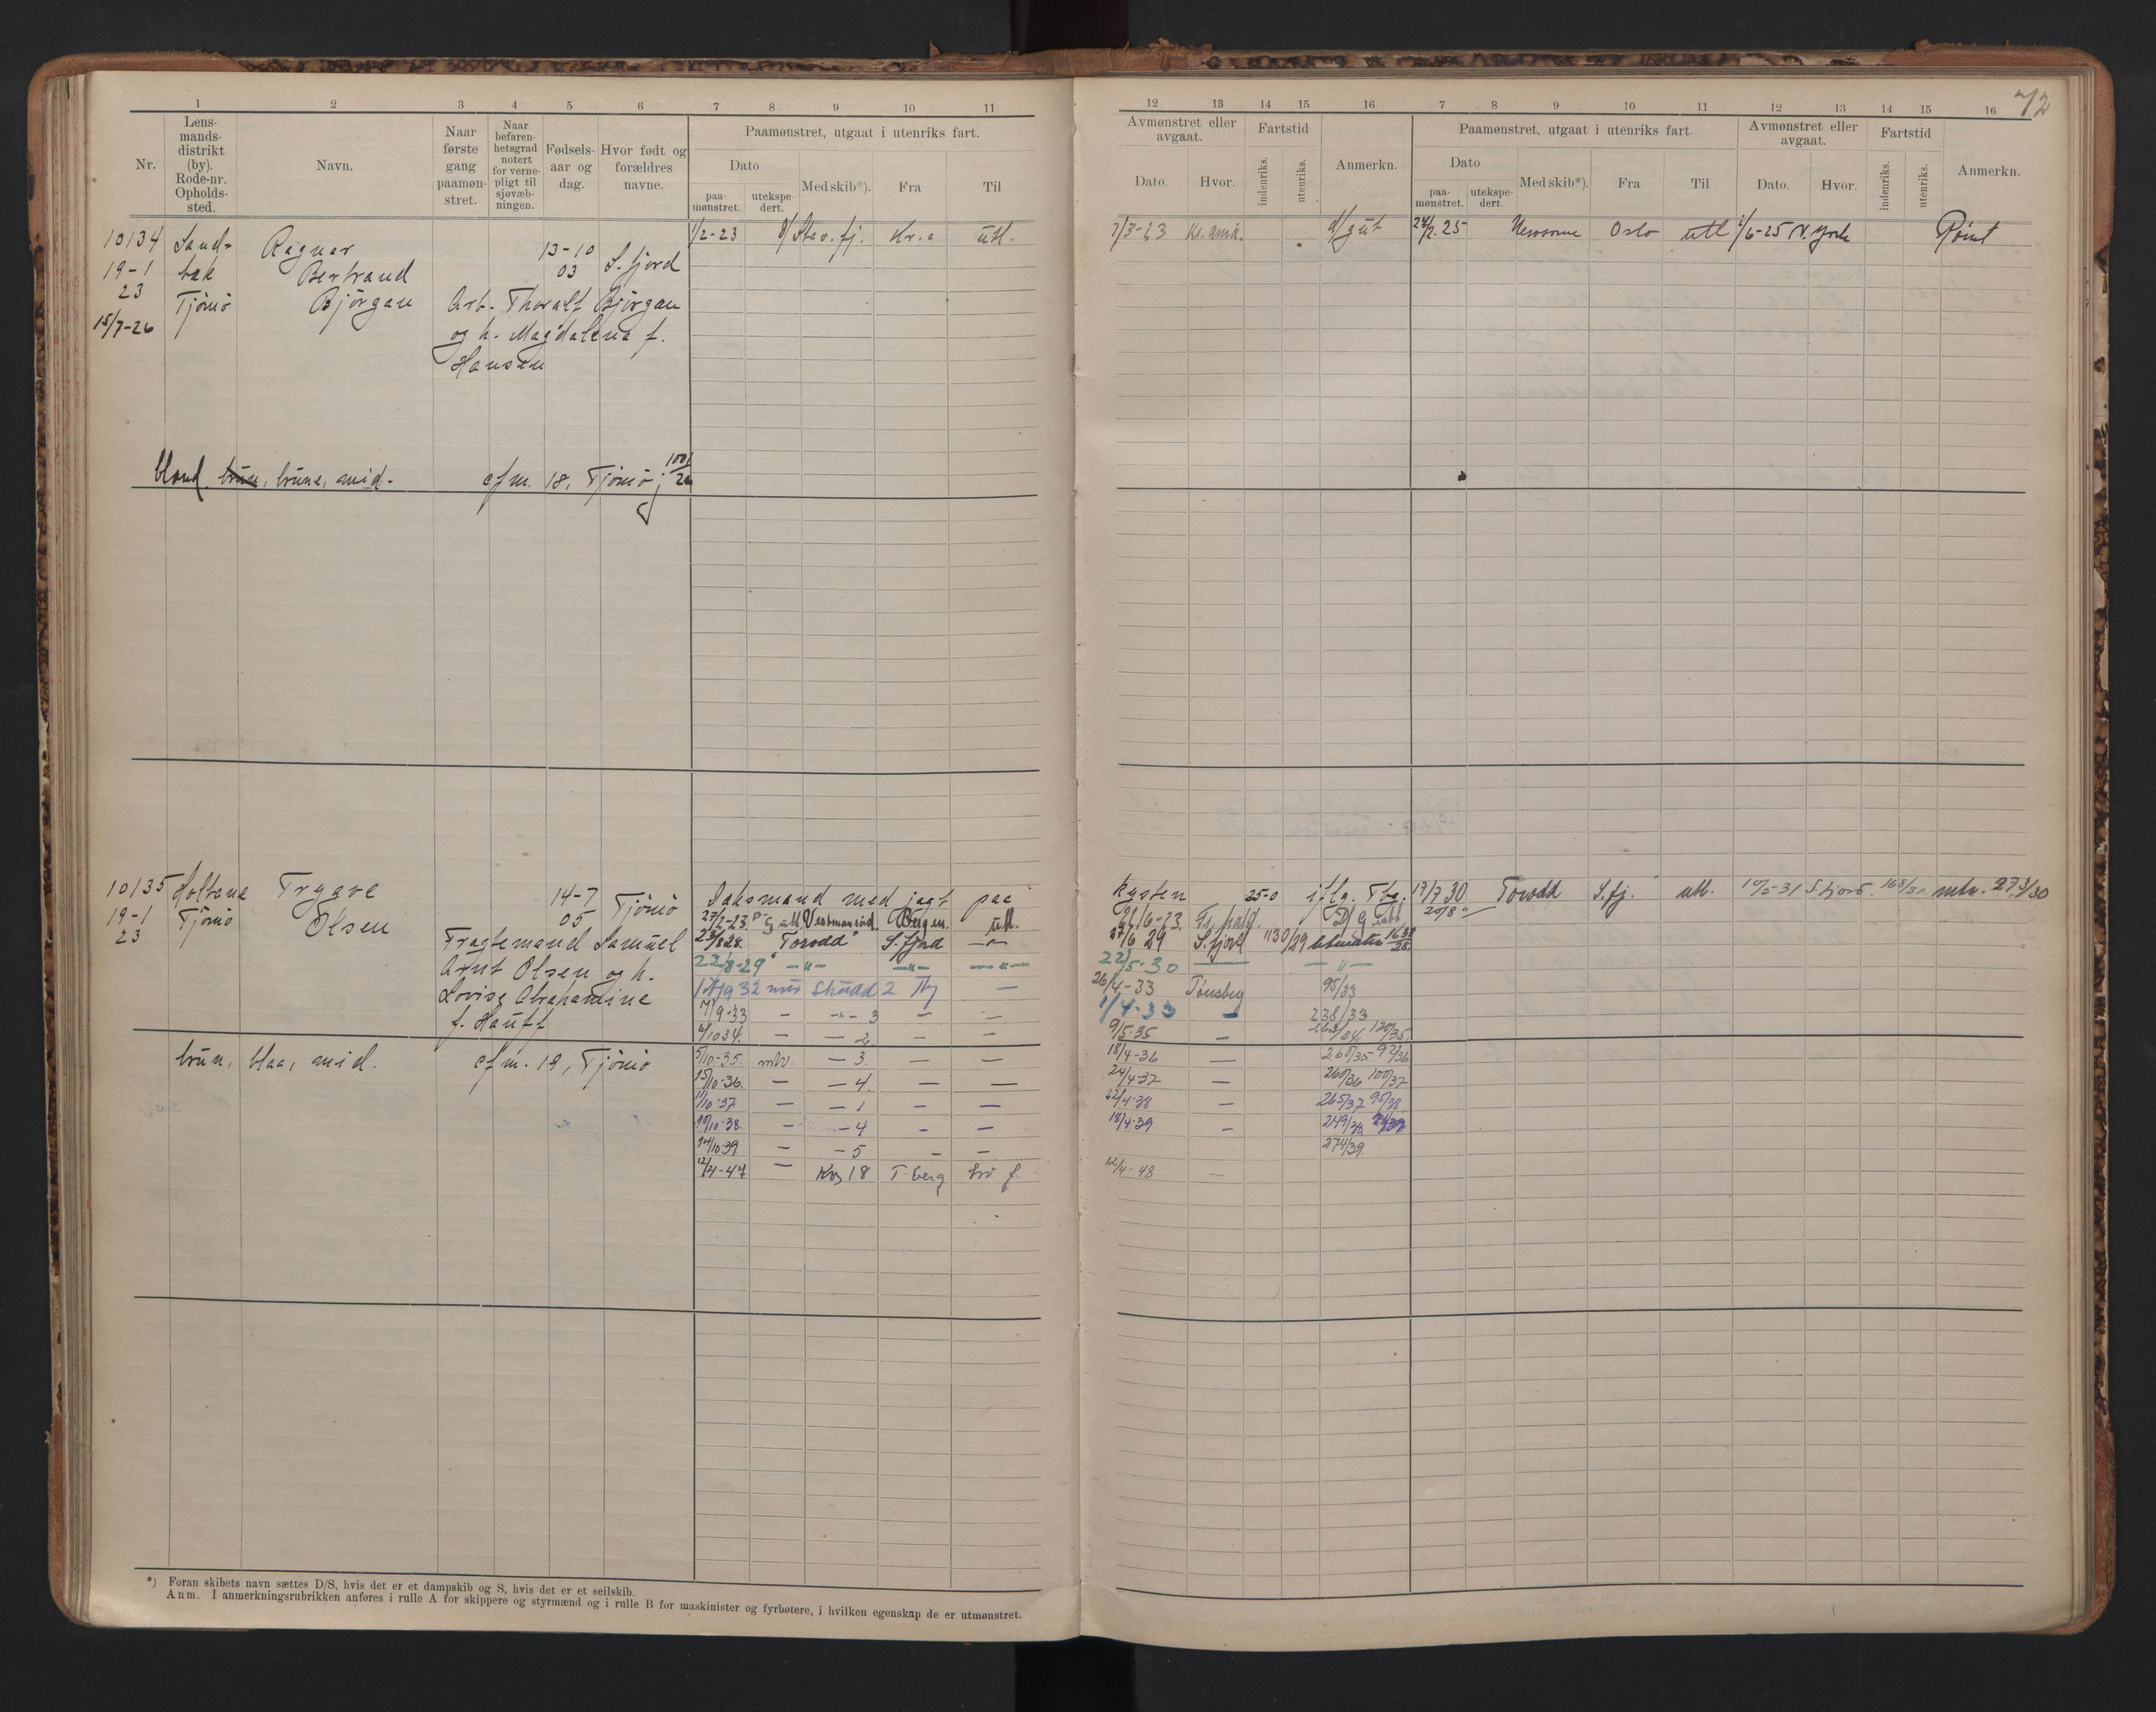 1 2 3 4 5 6 7 8 9 10 11
Nr. Lensmandsdistrikt (by). Rode-nr. Opholdssted. Navn. Naar første gang paamønstret. Naar befarenhetsgrad notert for vernepligt til sjøvæbningen. Fødselsaar og dag. Hvor født og forældres navne.
Paamønstret, utgaat i utenriks fart.
Dato Med skib*). Fra Til
paamønstret. utekspedert.
10134 Sand- Ragnar 13-10 S.fjord 1/2-23 Stav.fj. Kr.a utl.
19-1 bæk Bertrand 03
23 Tjömö Björgan Arb. Thoralf Björgan
15/7-26 og h. Magdalena f.
Hansen
blond, brun, brune, mid. cfm. 18, Tjömö
10135 Holtane Trygve 14-7 Tjömö Daksmand med jagt paa
19-1 Tjömö Olsen 05 27/2-23 Vestmanrød Bergen utl.
23 Fragtemand Samuel 23/8 28. Torodd S.fjord —"—
Arnt Olsen og h. 22/8-29 —"— —"— —"—
Lovise Abrahamine 1932 Skudd 2 Tbg —
f. Hauff 7/9-33 — —"— 3 — —
6/10 34. — — 2 — —
brun, blaa, mid. cfm. 19, Tjömö 5/10-35. mdv. — 3. — —
15/10-36. — — 4. — —
11/10-37. — — 1 — —
10/10-38. — — 4 — —
14/10 39 — — 5 — —
12/4-47 — Kos 18 T.berg
*) Foran skibets navn sættes D/S, hvis det er et dampskib og S, hvis det er et seilskib.
Anm. I anmerkningsrubrikken anføres i rulle A for skippere og styrmænd og i rulle B for maskinister og fyrbøtere, i hvilken egenskap de er utmønstret.
72
12 13 14 15 16 7 8 9 10 11 12 13 14 15 16
Avmønstret eller avgaat. Fartstid Anmerkn. Paamønstret, utgaat i utenriks fart. Avmønstret eller avgaat. Fartstid Anmerkn.
Dato. Hvor. indenriks. utenriks. Dato Med skib*). Fra Til Dato. Hvor. indenriks. utenriks.
paamønstret. utekspedert.
7/3-23 Kr.ania. d/gut 24/2. 25 Oslo utl 1/6-25 N.York Rømt
Kysten 25-0 iflg. Tbg. 17/7 30 Torodd S.fj. utl. 10/5-31 Sfjord. 168/31 mtr. 273/30
21/6-23. Fr.hald. 20/8 "
27/6 29 S.fjord 1130/29
22/5-30 — —"—
26/4-33 Tønsberg 95/33
1/4-33 — 238/33
9/5-35 — 120/35.
18/4-36 — 260/35-92/36
24/4-37 — 260/36 100/37
22/4-38 — 265/37 95/38
18/4-39 — 249/38
274/39.
12/4-48 —